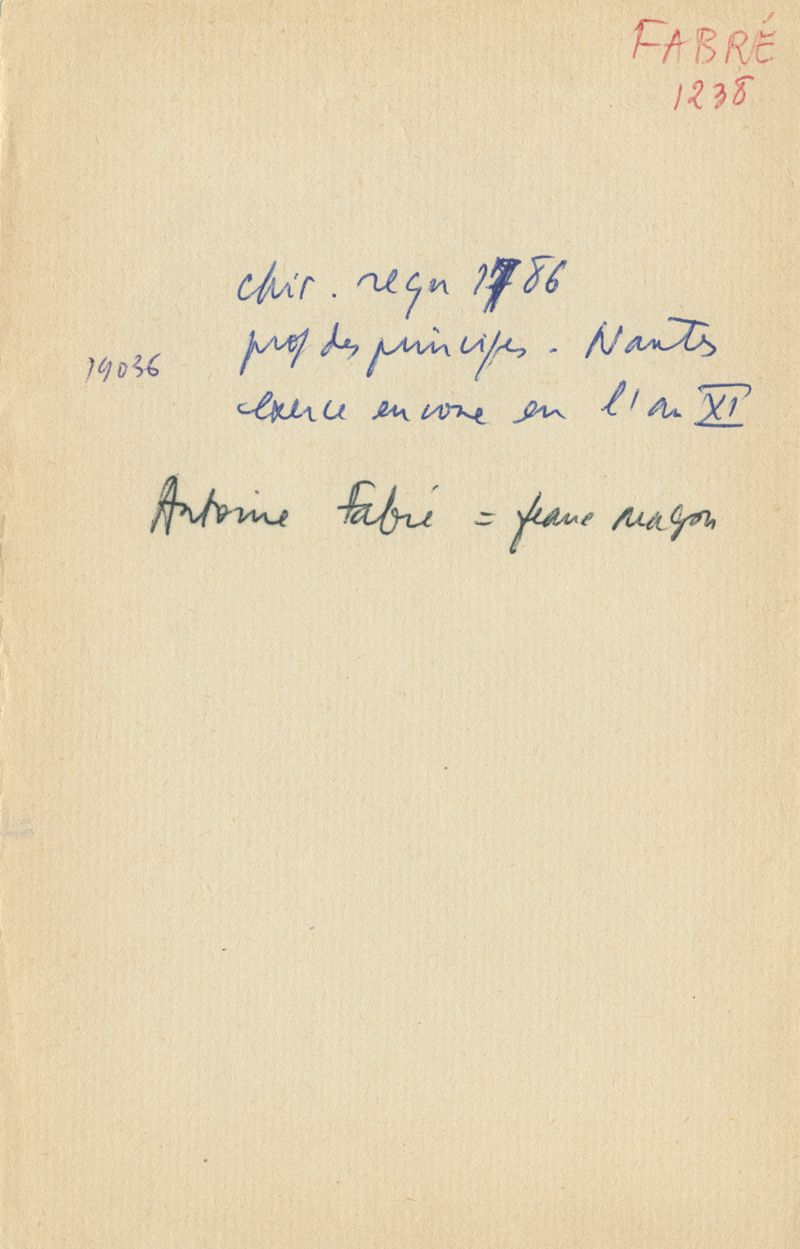 FABRÉ
1238
chir. reçu 1786
prof des principes. Nantes
19036
exerce encore en l'an XI
Antoine Fabré = Jeanne Magon